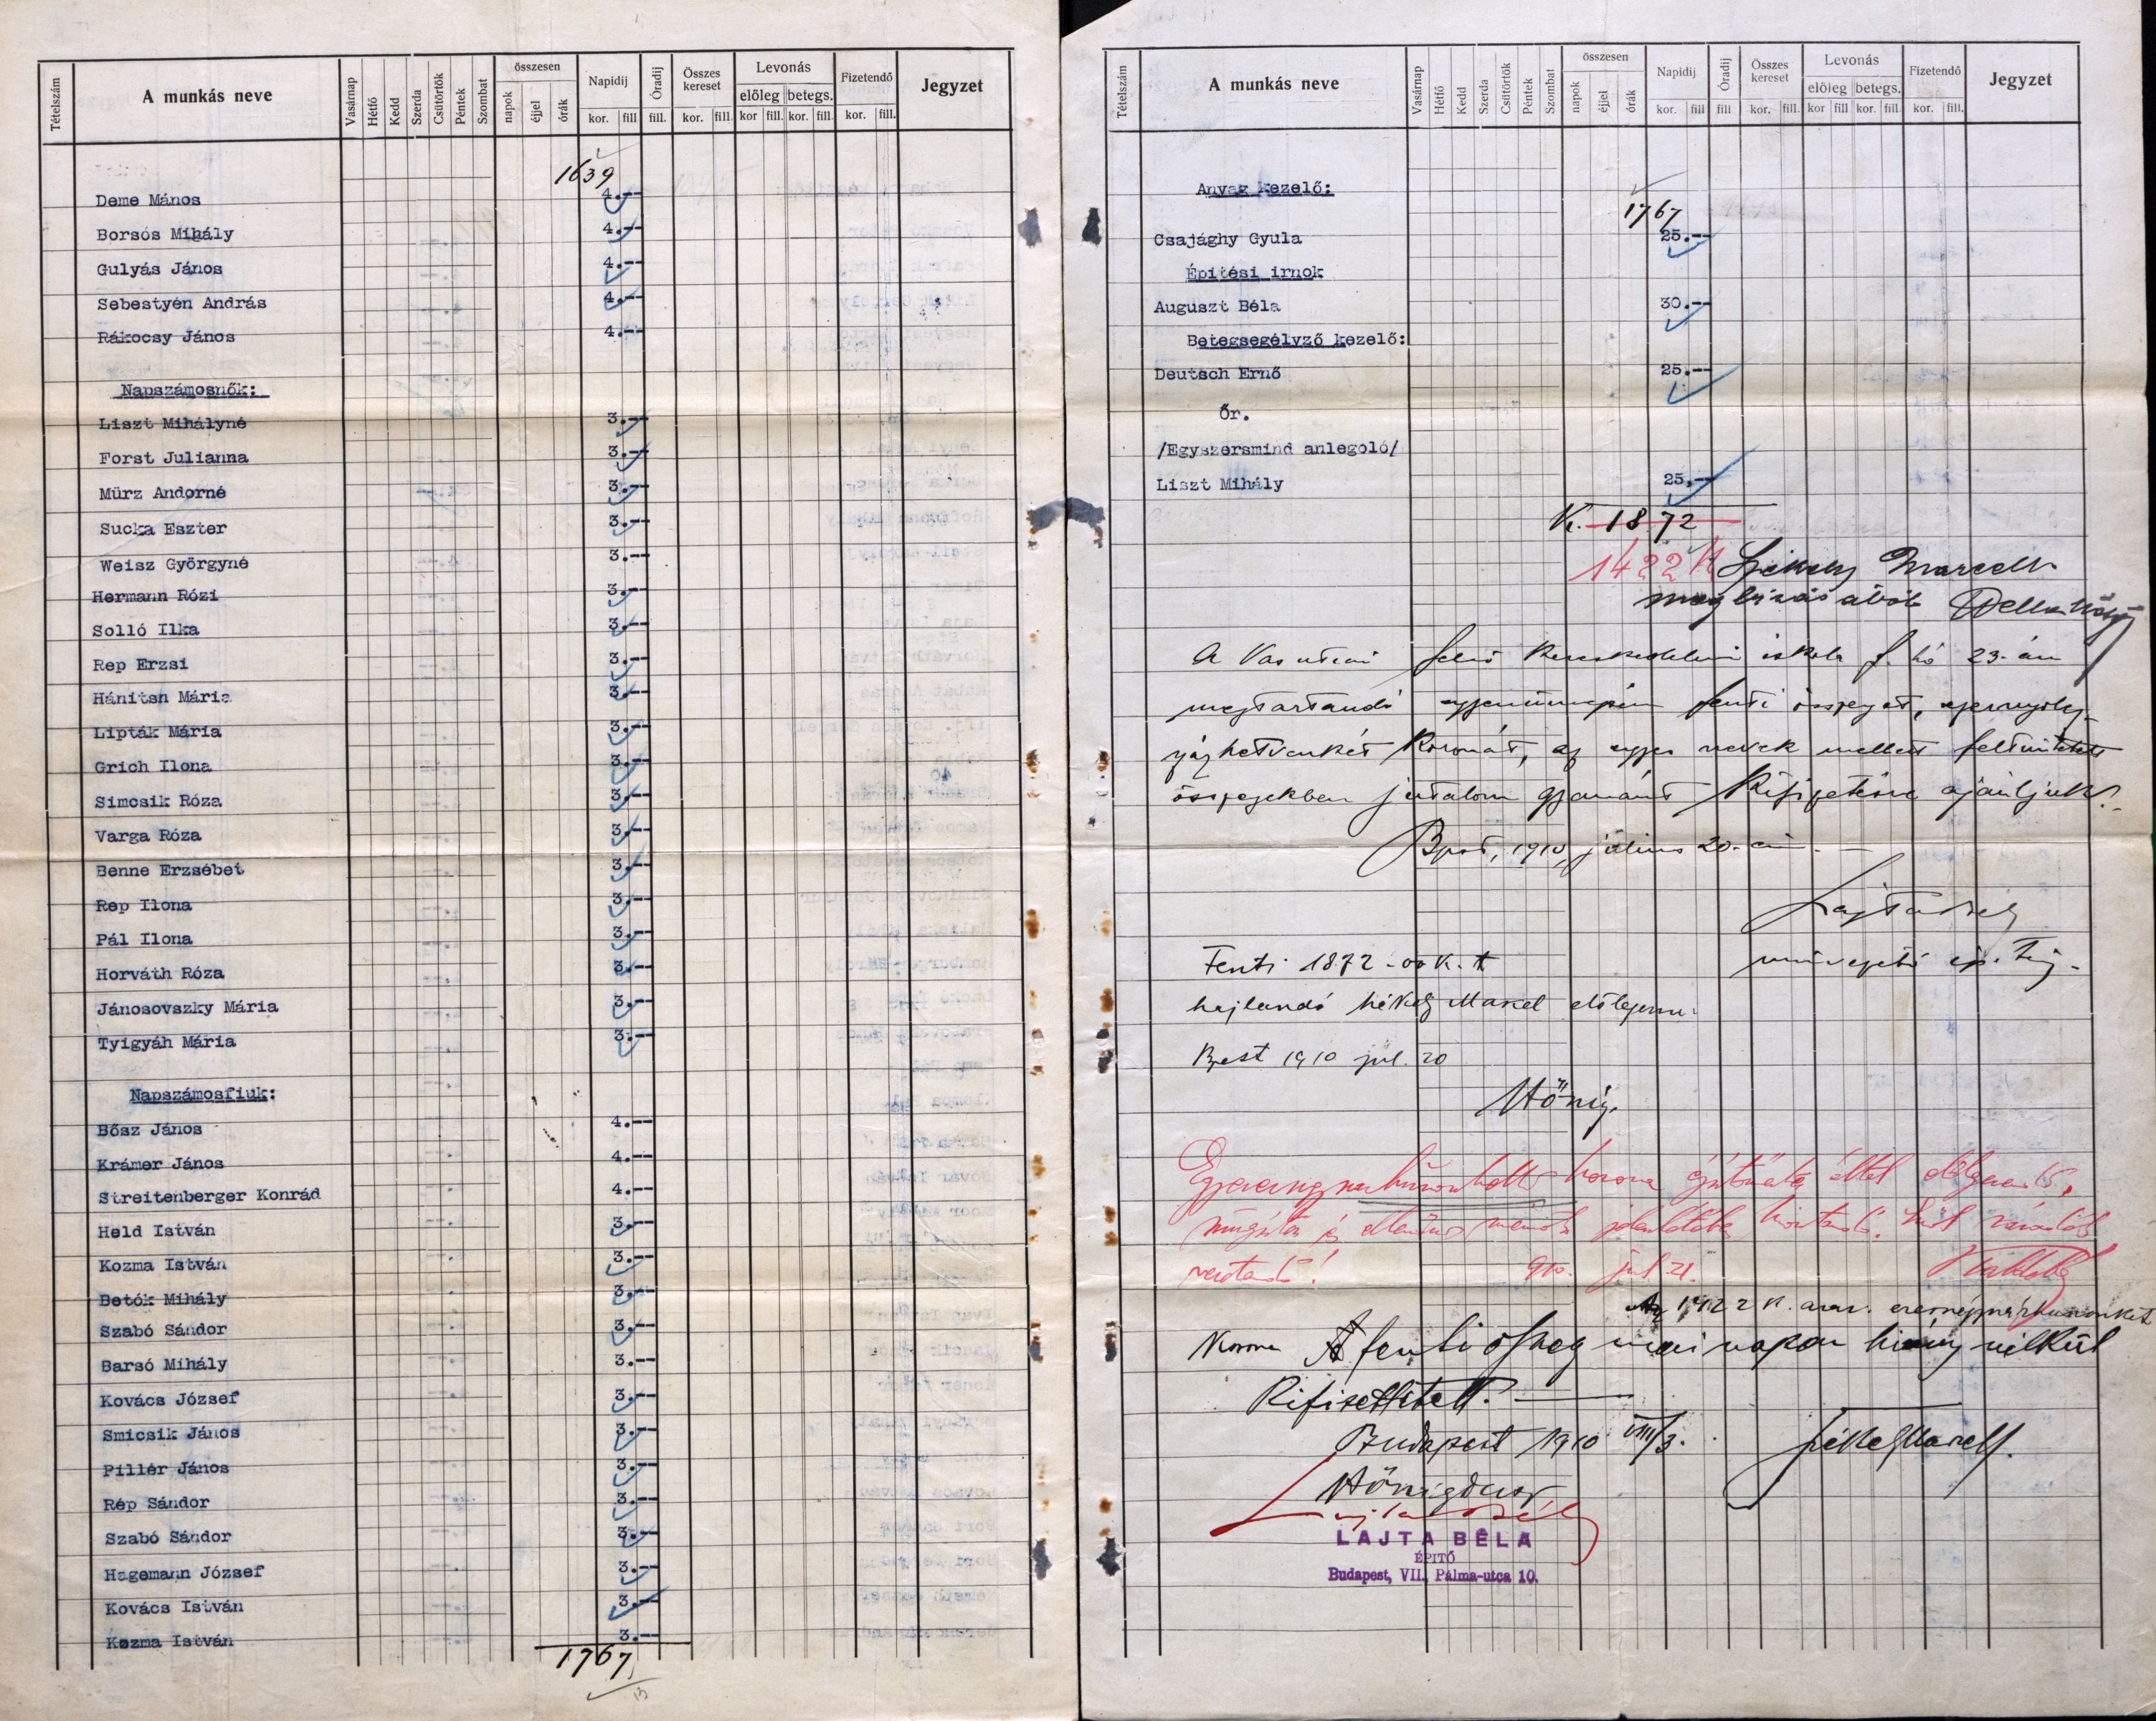 Tételszám A munkás neve Vasárnap Hétfő Kedd Szerda Csütörtök Péntek Szombat összesen napok éjjel órák Napidij kor. fill Óradij fill. Összes kereset kor. fill. Levonás előleg kor fill. betegs. kor. fill. Fizetendő kor. fill. Jegyzet
1639
Deme Mános 4.--
Borsós Mihály 4.--
Gulyás János 4.--
Sebestyén András 4.--
Rákocsy János 4.--
Napszámosnők:
Liszt Mihályné 3.--
Forst Julianna 3.--
Mürz Andorné 3.--
Sucka Eszter 3.--
Weisz Györgyné 3.--
Hermann Rózi 3.--
Solló Ilka 3.--
Rep Erzsi 3.--
Hánitsn Mária 3.--
Lipták Mária 3.--
Grich Ilona 3.--
Simcsik Róza 3.--
Varga Róza 3.--
Benne Erzsébet 3.--
Rep Ilona 3.--
Pál Ilona 3.--
Horváth Róza 3.--
Jánosovszky Mária 3.--
Tyigyáh Mária 3.--
Napszámosfiuk:
Bősz János 4.--
Krámer János 4.--
Streitenberger Konrád 4.--
Held István 3.--
Kozma István 3.--
Betók Mihály 3.--
Szabó Sándor 3.--
Barsó Mihály 3.--
Kovács József 3.--
Smicsik János 3.--
Pillér János 3.--
Rép Sándor 3.--
Szabó Sándor 3.--
Hagemann József 3.--
Kovács István 3.--
Kozma István 3.--
1767
13
Tételszám A munkás neve Vasárnap Hétfő Kedd Szerda Csütörtök Péntek Szombat összesen napok éjjel órák Napidij kor. fill Óradij fill Összes kereset kor. fill. Levonás előleg kor fill betegs. kor. fill. Fizetendő kor. fill. Jegyzet
Anyag kezelő:
1767
Csajághy Gyula 25.--
Épitési irnok
Auguszt Béla 30.--
Betegsegélyző kezelő:
Deutsch Ernő 25.--
Őr.
/Egyszersmind anlegoló/
Liszt Mihály 25.--
K. 1872
1422 K Székely Marcell
megbizásából
A Vas utcai felső kereskedelmi iskola f. hó 23-án
megtartandó fenti összeget, ezernyolc-
százhetvenkét koronát, az egyes nevek mellett feltüntetett
összegekben jutalom gyanánt kifizetésre ajánljuk.
Bpest, 1910 július 20-án.
Lajta Béla
művezető ép.
Fenti 1872-oo K.t
hajlandó Székely Marcel előlegezni.
Bpest 1910 jul. 20
Hőnig.
korona által
910. jul 21.
Az 1422 K. azaz.
korona A fenti összeg mai napon hiány nélkül
Kifizettetett.
Budapest 1910 VIII/3. Székely Marcell.
Hőnig Dezső
Lajta Béla
LAJTA BÉLA
ÉPITŐ
Budapest, VII. Pálma-utca 10.